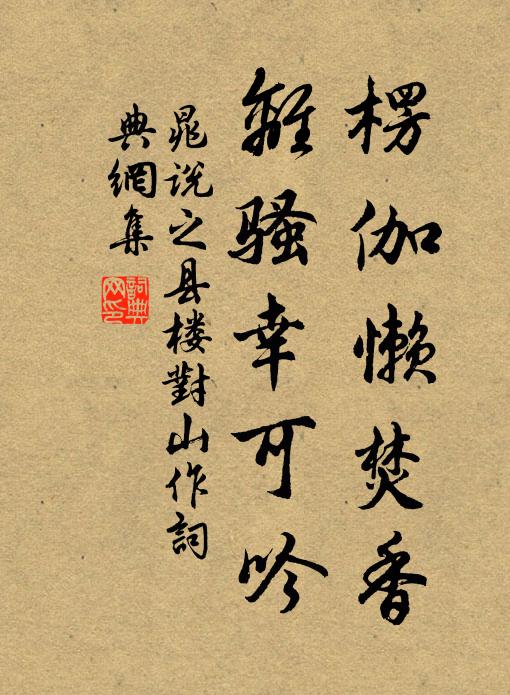 楞伽懒焚香
離騷幸可吟
晁说之县楼對山作詞
典網集
詞典网印